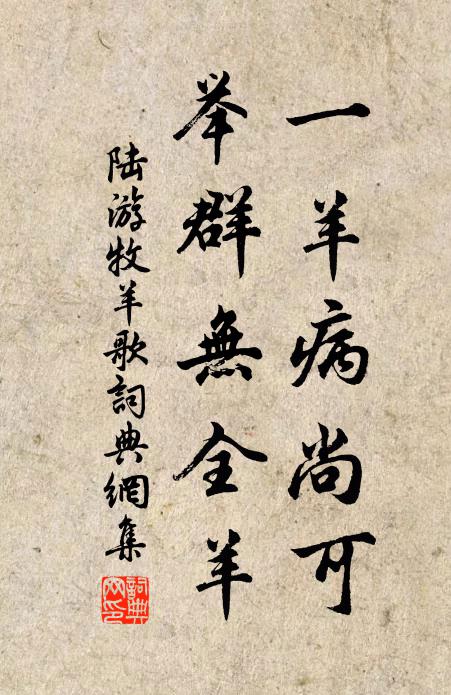 一羊病尚可
举群無全羊
陆游牧羊歌詞典網集
詞典网印